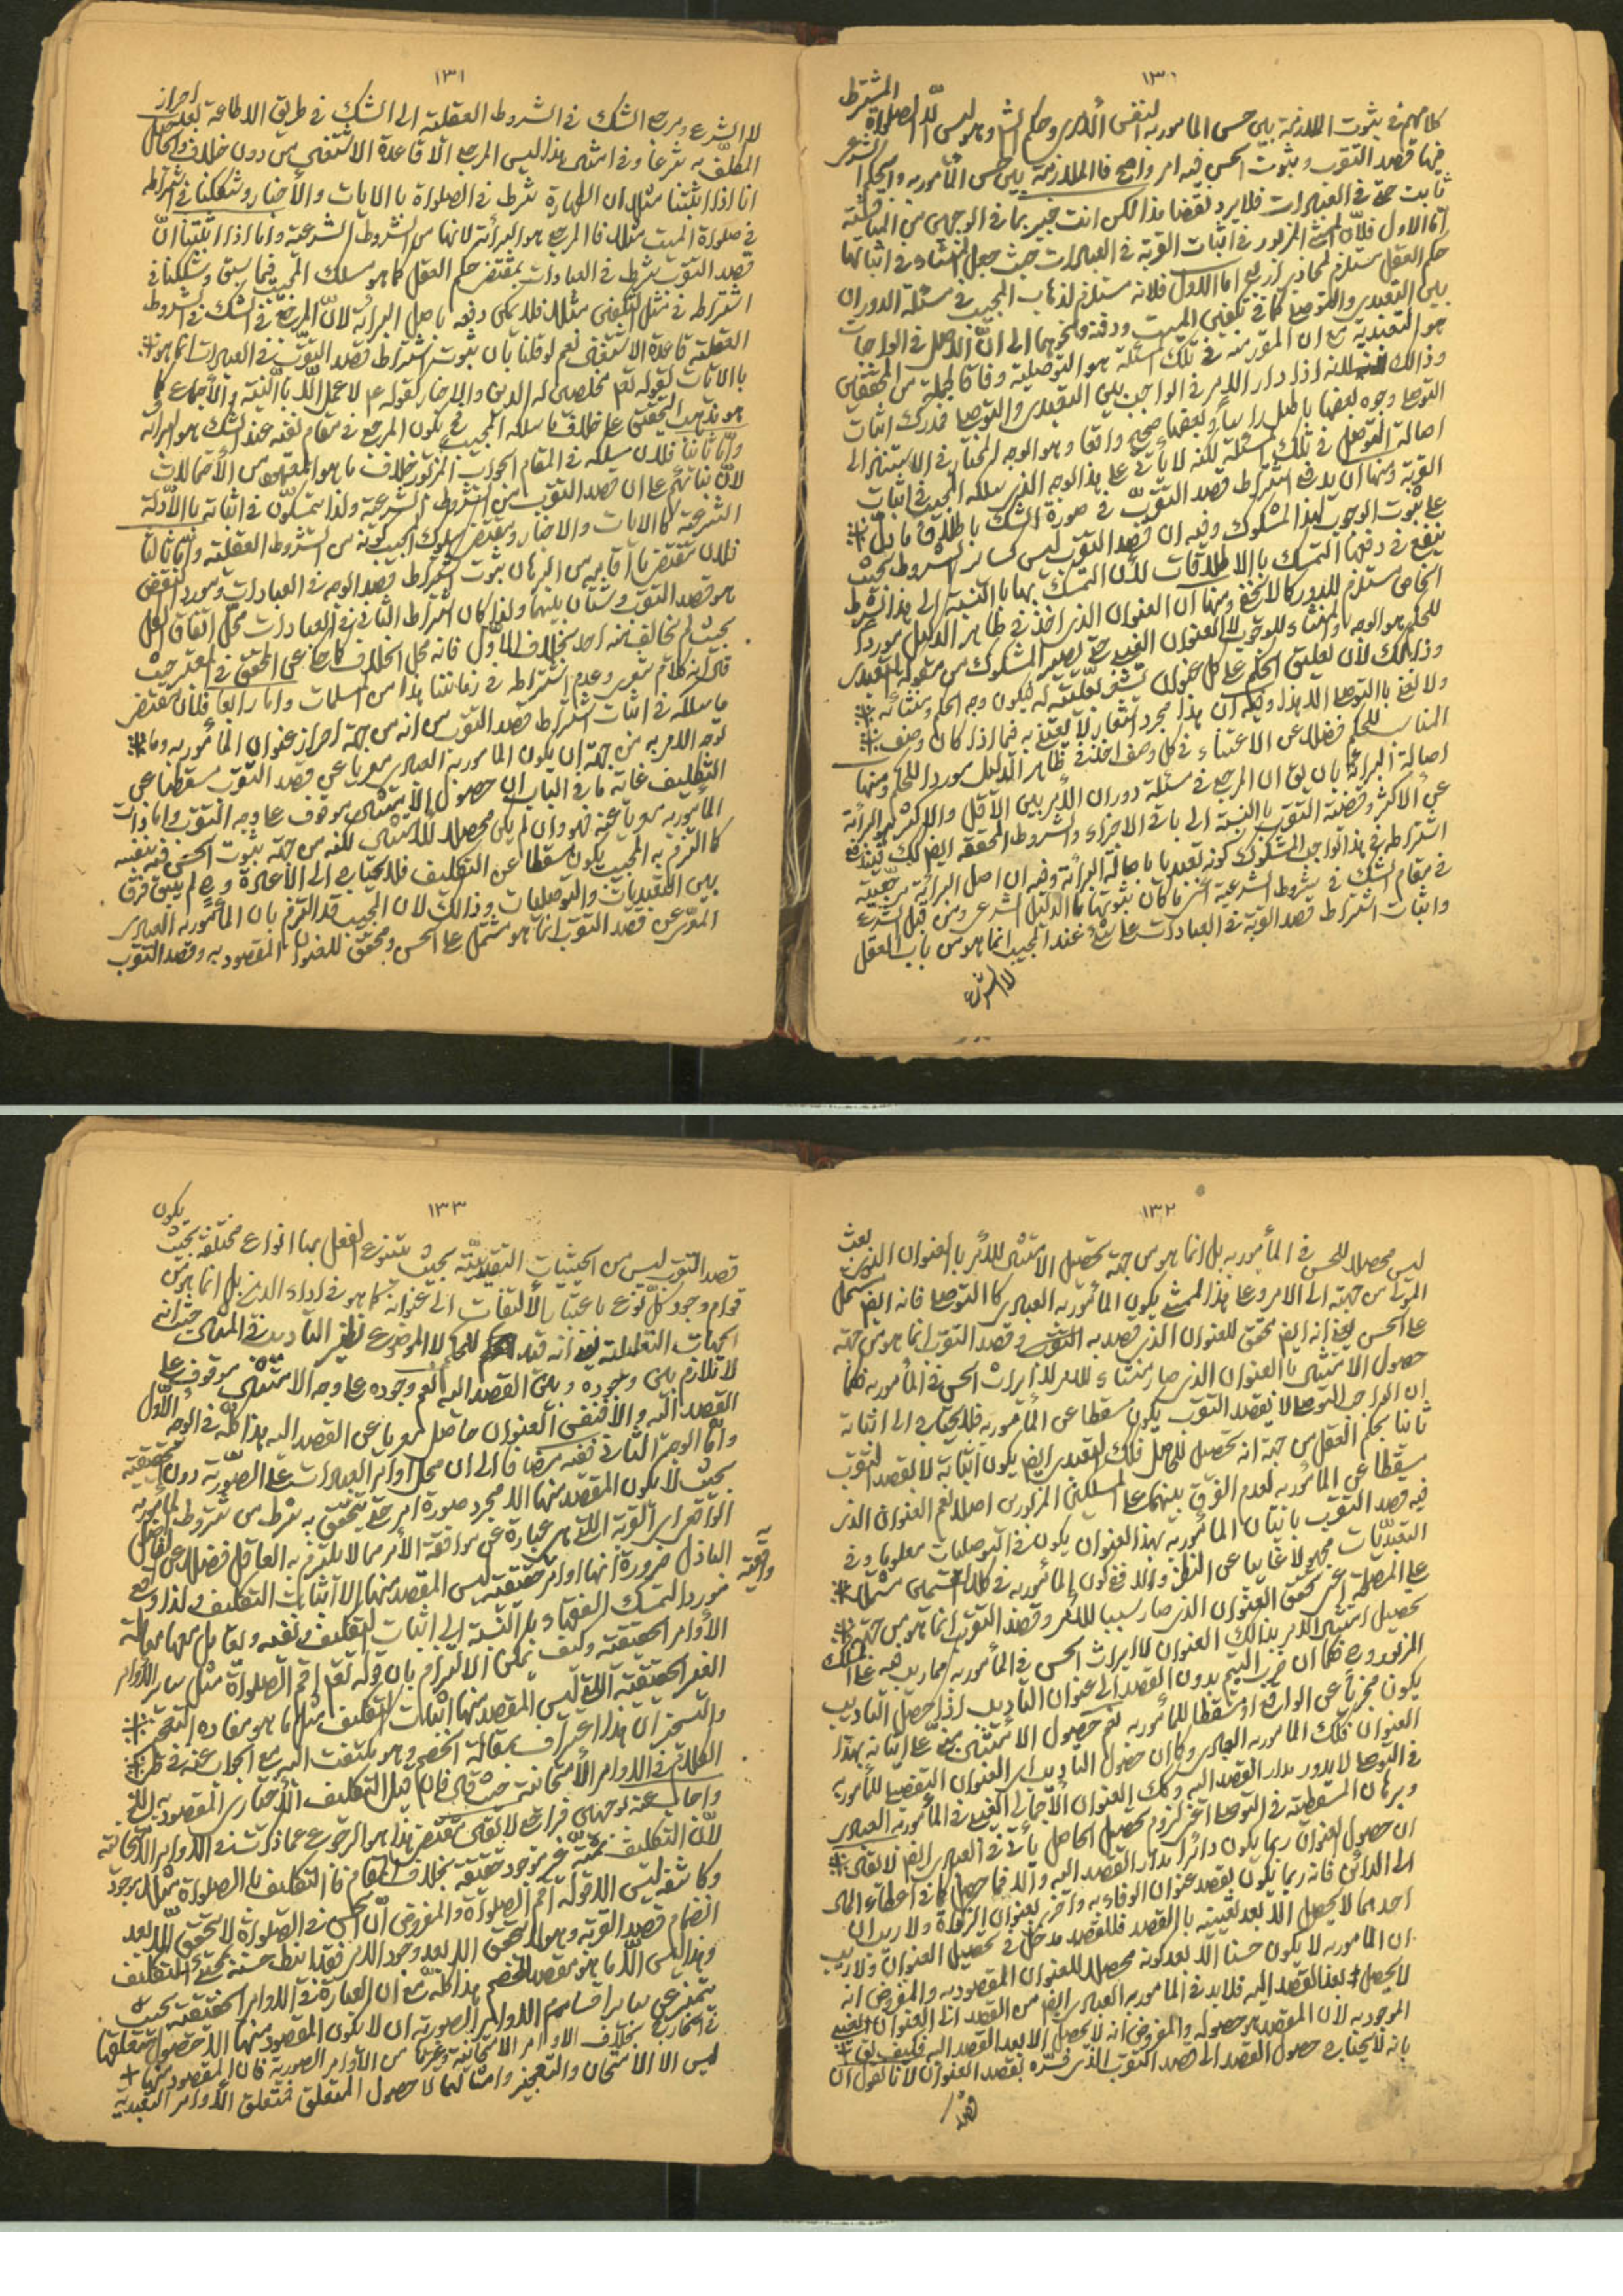 ١٣٠
كلامهم في ثبوت الملازمة بين حسن المأمور به لنفس الأمر وحكم الشارع وهو ليس الّا الصلواة المشترط
فيها قصد التقرب وثبوت الحسن فيه امر واضح فالملازمة بين حسن المأمور به والحكم الشرعي
ثابت حتى في العبادات فلا يرد نقضا هذا لكن انت خبير بما في الوجهين من المناقشة
امّا الاول فلأنّ المزبور في اثبات القربة في العبادات حيث جعل المنشاء في اثباتها
حكم العقل مستلزم لمحاذير اربع اما الاول فلانه مستلزم لذهاب المجيب في مسئلة الدوران
بين التعبدي والتوصلي كما في تكفين الميت ودفنه ونحوهما الى انّ الأصل في الواجبات
هو التعبدية مع ان المقرر منه في تلك المسئلة هو التوصلية وفاقا لجملة من المحققين
وذالك لانه اذا دار الامر في الواجب بين التعبدي والتوصلي فمدرك اثبات
التوصلي وجوه بعضها باطل راسا وبعضها صحيح واقعا وهو الوجه المختار في الاستناد الى
اصالة التوصل في تلك المسئلة لكنه لا يأتي على هذا الوجه الذي سلكه المجيب في اثبات
القربة ومنها ان يدفع اشتراط قصد التقرّب في صورة الشك باطلاق ما دلّ
على ثبوت الوجوب لهذا المشكوك وفيه ان قصد التقرب ليس كسائر الشروط بحيث
ينفع في دفعها التمسك بالاطلاقات لأن التمسك بها بالنسبة الى هذا الشرط
الخاص مستلزم للدور كما لا يخفى ومنها ان العنوان الذي اخذ في ظاهر الدليل موردا
للحكم هو الوجه والمنشاء للوجوب لا العنوان الغيبي حتى يصير المشكوك من مقولة التعبدي
وذالك لأن تعليق الحكم على كل عنوان يشعر بعلّيته له فيكون وجه الحكم ومنشائه
ولا نعني بالتوصلي الا هذا وفيه ان هذا مجرد اشعار لا يعتنى به فيما اذا كان وصف
المناسب للحكم فضلا عن الاعتناء في كل وصف اخذ في ظاهر الدليل موردا للحكم ومنها
اصالة البرائة بان يق ان المرجع في مسئلة دوران الأمر بين الأقل والاكثر هو البرائة
عن الأكثر وقضية التقرب بالنسبة الى باقي الاجزاء والشروط المحققة ايضا كك فيندفع
اشتراطه في هذا الواجب المشكوك كونه تعبديا باصالة البرائة وفيه ان اصل البرائة مرجعية
في مقام الشك في شروط الشرعية اي ما كان ثبوتها بالدليل الشرعي ومن قبل الشرع
واثبات اشتراط قصد القربة في العبادات على عند المجيب انما هو من باب العقل
لا الشرع
١٣١
لا الشرع ومرجع الشك في الشروط العقلية الى الشك في طريق الاطاعة بعد احراز
المكلّف به شرعا وفي امثال هذا ليس المرجع الّا قاعدة الاشتغال من دون خلاف والحاصل
انا اذا اثبتنا مثلا ان الطهارة شرط في الصلواة بالايات والأخبار وشككنا في اشتراطه
في صلواة الميت مثلا فالمرجع هو البرائة لانها من الشروط الشرعية واما اذا اثبتنا انّ
قصد التقرب شرط في العبادات بمقتضى حكم العقل كما هو مسلك المجيب فيما سبق وشككنا في
اشتراطه في مثل التكفين مثلا فلا يمكن دفعه باصل البرائة لانّ المرجع في الشك في الشروط
العقلية قاعدة الاشتغال نعم لو قلنا بان ثبوت اشتراط قصد التقرّب في العبادات انما هو
بالايات لقوله تعم مخلصين له الدين والاخبار كقوله ع لا عمل الّا بالنية والأجماع كما
هو مذهب التحقيق على خلاف ما سلكه المجيب فح يكون المرجع في مقام نفيه عند الشك هو البرائة
وامّا ثانيا فلان سلوكه في المقام الجواب المزبور خلاف ما هو المعهود من الأحتمالات
لانّ بنائهم على ان قصد التقرب من الشروط الشرعية ولذا يتمسكون في اثباته بالأدلّة
الشرعية كالايات والاخبار ومقتضى سلوك المجيب كونه من الشروط العقلية وامّا ثالثا
فلان مقتضى ما اقامه من البرهان ثبوت اشتراط قصد الوجه في العبادات ومورد النقض
هو قصد التقرب وشتّان بينهما ولذا كان اشتراط الثاني في العبادات محل اتفاق الكل
بحيث لم يخالف فيه احد بخلاف الأوّل فانه محل الخلاف كما حكي عن المحقق في المعتبر حيث
قال انه كلام شعري وعدم اشتراطه في زماننا هذا من المسلمات واما رابعا فلأن مقتضى
ما سلكه في اثبات اشتراط قصد التقرب من انه من جهة احراز عنوان المأمور به وما
توجه الامر به من جهته ان يكون المأمور به العبادي معرى عن قصد التقرب مسقطا عن
التكليف غاية ما في الباب ان حصول الأمتثال موقوف على وجه التقرب واما ذات
المأمور به معرياً عنه فهو وان لم يكن محصلا للأمتثال لكنه من جهة ثبوت الحسن فيه بنفسه
كما التزم به المجيب يكون مسقطا عن التكليف فلا يحتاج الى الاعادة وح لم يبق فرق
بين التعبديات والتوصليات وذالك لان المجيب قد التزم بان المأمور به العبادي
المعرّى عن قصد التقرب انما هو مشتمل على الحسن ومحقق للعنوان المقصود به وقصد التقرب
١٣٢
ليس محصلا للحسن في المأمور به بل انما هو من جهة تحصيل الامتثال للأمر بالعنوان الذي بعث
المولى من جهته الى الامر وعلى هذا الممشى يكون المأمور به العبادي كالتوصلي فانه ايضا مشتمل
على الحسن بمعنى انه ايضا محقق للعنوان الذي قصد به التقرب وقصد التقرب انما هو من جهة
حصول الأمتثال بالعنوان الذي صار منشاء للامر لا ايراث الحسن في المأمور به فكما
ان الواجب التوصلي لا بقصد التقرب يكون مسقطا عن المأمور به فلا يحتاج الى اثباته
ثانيا بحكم العقل من جهة انه تحصيل للحاصل فكك التعبدي ايضا يكون اتيانه لا بقصد التقرب
مسقطا عن المأمور به لعدم الفرق بينهما على المسلكين المزبورين اصلا نعم العنوان الذي
فيه قصد التقرب باتيان المأمور به بهذا العنوان يكون في التوصليات معلوما وفي
التعبديّات مجهولا غايبا عن النظر والا ففي كون المأمور به في كلا القسمين مشتملا
على المصلحة اعني محقق العنوان الذي صار سببا للأمر وقصد التقرب انما هو من جهة
تحصيل امتثال الامر بذالك العنوان لا ايراث الحسن في المأمور به مما ريب فيه على المسلك
المزبور وح فكما ان ضرب اليتيم بدون القصد الى عنوان التأديب اذا حصل التأديب
يكون مجزيا عن الواقع او مسقطا للمأمور به نعم حصول الأمتثال مبنيّ على اتيانه بهذا
العنوان فكك المأمور به العبادي وكما ان حصول التأديب اي العنوان التفصيلي للمأمور به
في التوصلي لا يدور مدار القصد اليه وكك العنوان الأجمالي الغيبي في المأمور به العبادي
وبرهان المسقطية في التوصلي اعني لزوم تحصيل الحاصل يأتي في العبادي ايضا لا يقال
ان حصول العنوان ربما يكون دائرا مدار القصد اليه والا فما حصل كما في اعطاء المال
الى الدائن فانه ربما يكون بقصد عنوان الوفاء به واخرى بعنوان الزكوة ولا ريب ان
احدهما لا يحصل الا بعد تعيينه بالقصد فللقصد مدخل في تحصيل العنوان ولا ريب
ان المأمور به لا يكون حسنا الّا بعد كونه محصلا للعنوان المقصود به والمفروض انه
لا يحصل الا بعد القصد اليه فلا بد في المأمور به العبادي ايضا من القصد الى العنوان الغيبي
الموجود به لأن المقصد هو حصوله والمفروض انه لا يحصل الا بعد القصد اليه فكيف يق
بانه لا يحتاج حصول القصد الى قصد التقرب الذي فسّره بقصد العنوان لانا نقول ان
قصد
١٣٣
قصد التقرب ليس من الحيثيات التقييديّة بحيث يتنوع الفعل بها انواع مختلفة بحيث يكون
قوام وجود كلّ نوع باعتبا بالألتفات الى عنوانه كما هو في اداء الدين بل انما هو من
الجهات التعليلية بمعنى انه قيد للحكم لا الموضوع نظير التأديب في المثال حيث انه
لا تلازم بين وجوده وبين القصد اليه نعم وجوده على وجه الامتثال موقوف على
القصد اليه والا فنفس العنوان حاصل معريا عن القصد اليه هذا كله في الوجه الأوّل
وامّا الوجه الثاني ففيه مضافا الى ان حمل اوامر العبادات على الصوريّة دون الحقيقيّة
بحيث لا يكون المقصد منها الا مجرد صورة امر حتى يتحقق به شرط من شروط المأمور به
الواقعي اي القربة التي هي عبارة عن موافقة الأمر مما لا يلتزم به العاقل فضلا عن الفاضل
الباذل ضرورة انها اوامر حقيقية ليس المقصد منها الا اثبات التكليف ولذا وقع
موردا لتمسك الفقهاء بها بالنسبة الى اثبات التكليف في نفيه وتعامل معها معاملة
الأوامر الحقيقية وكيف يمكن الالتزام بان قوله تعم اقم الصلواة مثل ساير الأوامر
الغير الحقيقية التي ليس المقصد منها اثبات التكليف مثل ما هو مفاده التعجيز
والتسخير ان هذا اعتراف بمقالة الخصم وهو ملتفت اليه مع الجواب عنه في طي
الكلام في الاوامر الأمتحانية حيث قال فان قيل التكليف الأختباري المقصود به
واجاب عنه بوجهين فراجع لا يقال مقتضى هذا هو الرجوع عما ذكرت في الاوامر الامتحانية
لأنّ التكليف ثمّة غير موجود حقيقة بخلاف المقام فالتكليف بالصلواة مثلا موجود
وكاشفه ليس الا قوله اقم الصلواة والمفروض انّ الحسن في الصلواة لا يتحقق الّا بعد
انضمام قصد القربة وهو لا يتحقق الا بعد وجود الامر فقد انيط حسنه بمجيء التكليف
وهذا ليس الّا ما هو مقصد الخصم هذا كلّه مع ان العبارة في الاوامر الحقيقية بحيث
يتميّز عن ساير اقسام الاوامر الصورية ان لا يكون المقصود منها الا حصول متعلقها
في الخارج بخلاف الاوامر الامتحانية وغيرها من الأوامر الصورية فان المقصود منها
ليس الا الأمتحان والتعجيز وامثالهما لا حصول المتعلق فمتعلق الأوامر التعبدية